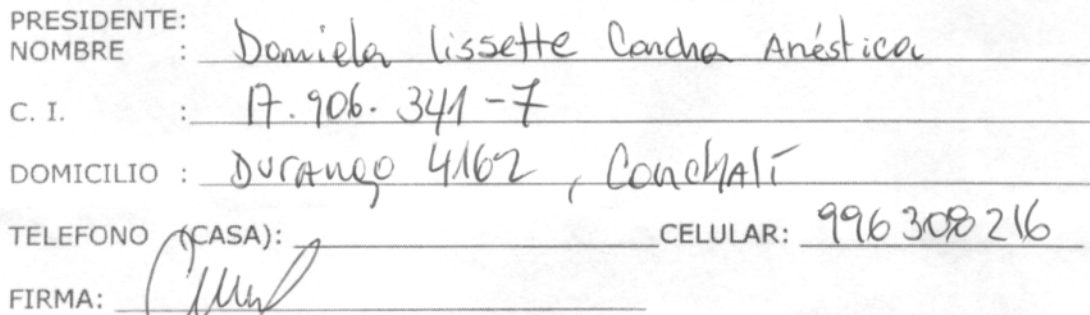 PRESIDENTE:
NOMBRE : Daniela lissette Concha Anéstica
C. I. : 17.906.341-7
DOMICILIO : Durango 4162, Conchalí
TELEFONO (CASA): CELULAR: 996308216
FIRMA: